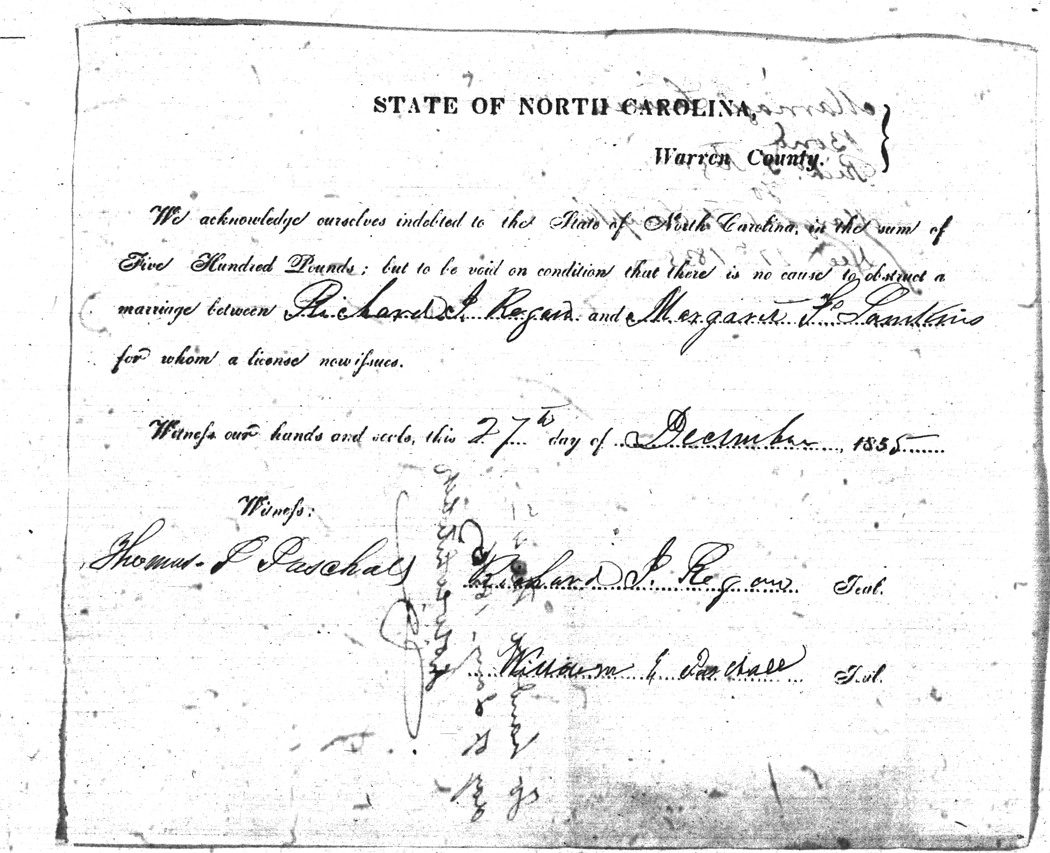 STATE OF NORTH CAROLINA,
Warren County.
We acknowledge ourselves indebted to the State of North Carolina, in the sum of
Five Hundred Pounds; but to be void on condition that there is no cause to obstruct a
marriage between Richard J. Regan and Margaret F Lamkins
for whom a license now issues.
Witness our hands and seals, this 27th day of December, 1835
Witness:
Thomas P Paschall
Richard J. Regan Seal.
William E Paschall Seal.